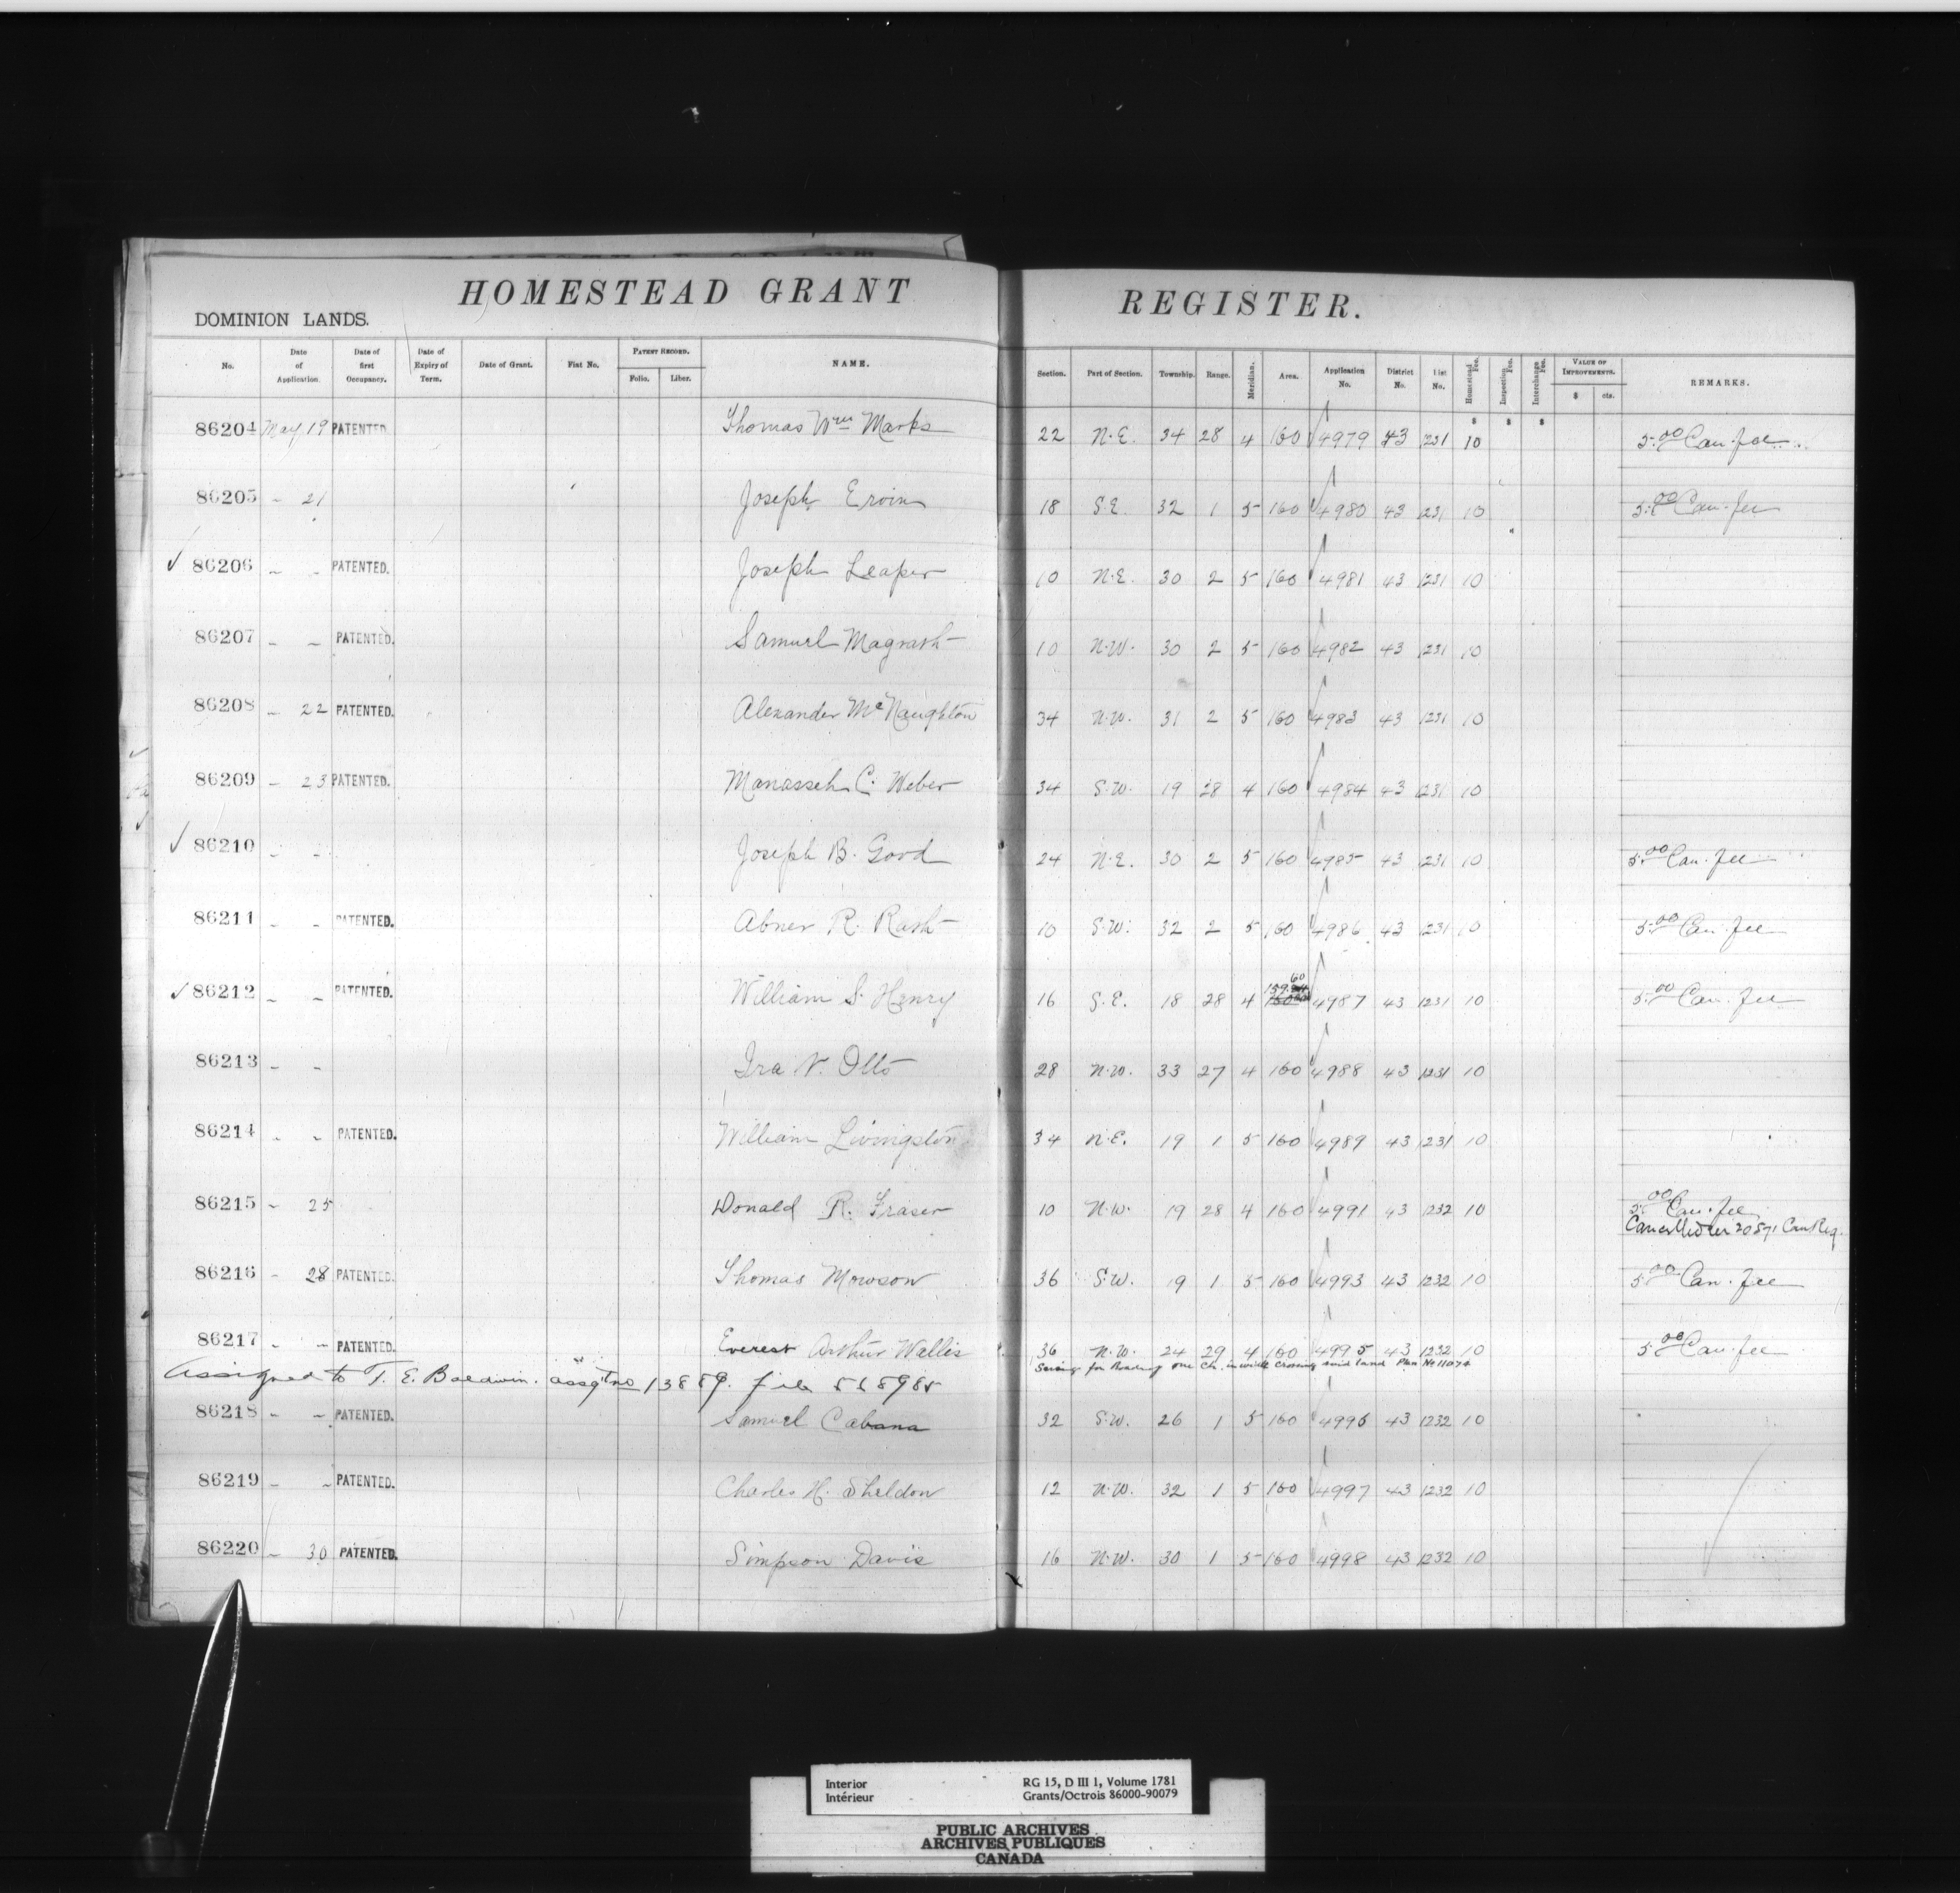 HOMESTEAD GRANT REGISTER.
DOMINION LANDS.
No. Date of Application. Date of first Occupancy. Date of Expiry of Term. Date of Grant. Fiat No. PATENT RECORD. Folio. Liber. NAME. Section. Part of Section. Township. Range. Meridian. Area. Application No. District No. List No. Homestead Fee. Inspection Fee. Interchange Fee. VALUE OF IMPROVEMENTS. $ cts. REMARKS.
$ $ $
86204 May 19 PATENTED Thomas Wm Marks 22 N.E. 34 28 4 160 4979 43 1231 10 5.00 Can. fee
86205 " 21 Joseph Ervin 18 S.E. 32 1 5 160 4980 43 1231 10 5.00 Can. fee
✓ 86206 " " PATENTED. Joseph Leaper 10 N.E. 30 2 5 160 4981 43 1231 10
86207 " " PATENTED. Samuel Magrath 10 N.W. 30 2 5 160 4982 43 1231 10
86208 " 22 PATENTED. Alexander McNaughton 34 N.W. 31 2 5 160 4983 43 1231 10
86209 " 23 PATENTED. Manasseh C. Weber 34 S.W. 19 28 4 160 4984 43 1231 10
✓ 86210 " " Joseph B. Good 24 N.E. 30 2 5 160 4985 43 1231 10 5.00 Can. fee
86211 " " PATENTED. Abner R. Rash 10 S.W. 32 2 5 160 4986 43 1231 10 5.00 Can. fee
✓ 86212 " " PATENTED. William S. Henry 16 S.E. 18 28 4 159.60 4987 43 1231 10 5.00 Can. fee
86213 " " Ira N. Otto 28 N.W. 33 27 4 160 4988 43 1231 10
86214 " " PATENTED. William Livingston 34 N.E. 19 1 5 160 4989 43 1231 10
86215 " 25 Donald R. Fraser 10 N.W. 19 28 4 160 4991 43 1232 10 5.00 Can. fee
Cancelled 20571 Can Reg.
86216 " 28 PATENTED. Thomas Mowson 36 S.W. 19 1 5 160 4993 43 1232 10 5.00 Can. fee
86217 " " PATENTED. Everest Arthur Wallis 36 N.W. 24 29 4 160 4995 43 1232 10 5.00 Can. fee
Saving for Roadway one Ch. in width crossing said land Plan No 11074
Assigned to T. E. Baldwin. assgt no 13889. file 558985
86218 " " PATENTED. Samuel Cabana 32 S.W. 26 1 5 160 4996 43 1232 10
86219 " " PATENTED. Charles H. Sheldon 12 N.W. 32 1 5 160 4997 43 1232 10
86220 " 30 PATENTED. Simpson Davis 16 N.W. 30 1 5 160 4998 43 1232 10
Interior RG 15, D III 1, Volume 1781
Intérieur Grants/Octrois 86000-90079
PUBLIC ARCHIVES
ARCHIVES PUBLIQUES
CANADA